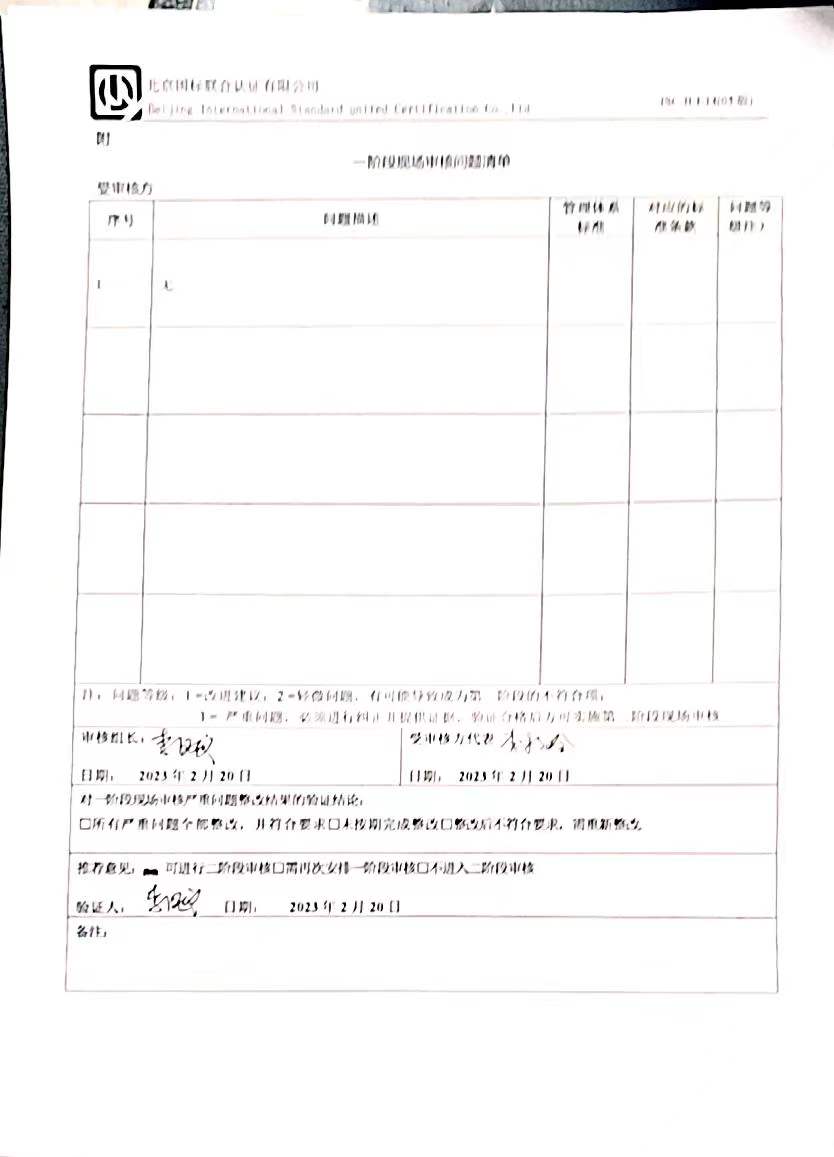 北京国标联合认证有限公司
Beijing International Standard united Certification Co.,Ltd
附
一阶段现场审核问题清单
受审核方
序号 问题描述 管理体系标准 对应的标准条款 问题等级(注)
1
注:问题等级:1=改进建议;2=轻微问题,有可能导致成为第二阶段的不符合项;
严重问题,必须进行纠正并提供证据,验证合格后方可实施第二阶段现场审核
审核组长: 受审核方代表
日期: 2023 年 2 月 20 日 日期: 2023 年 2 月 20 日
对一阶段现场审核严重问题整改结果的验证结论:
□所有严重问题全部整改,并符合要求□未按期完成整改□整改后不符合要求,需重新整改
推荐意见: 可进行二阶段审核□需再次安排一阶段审核□不进入二阶段审核
验证人: 日期: 2023 年 2 月 20 日
备注: